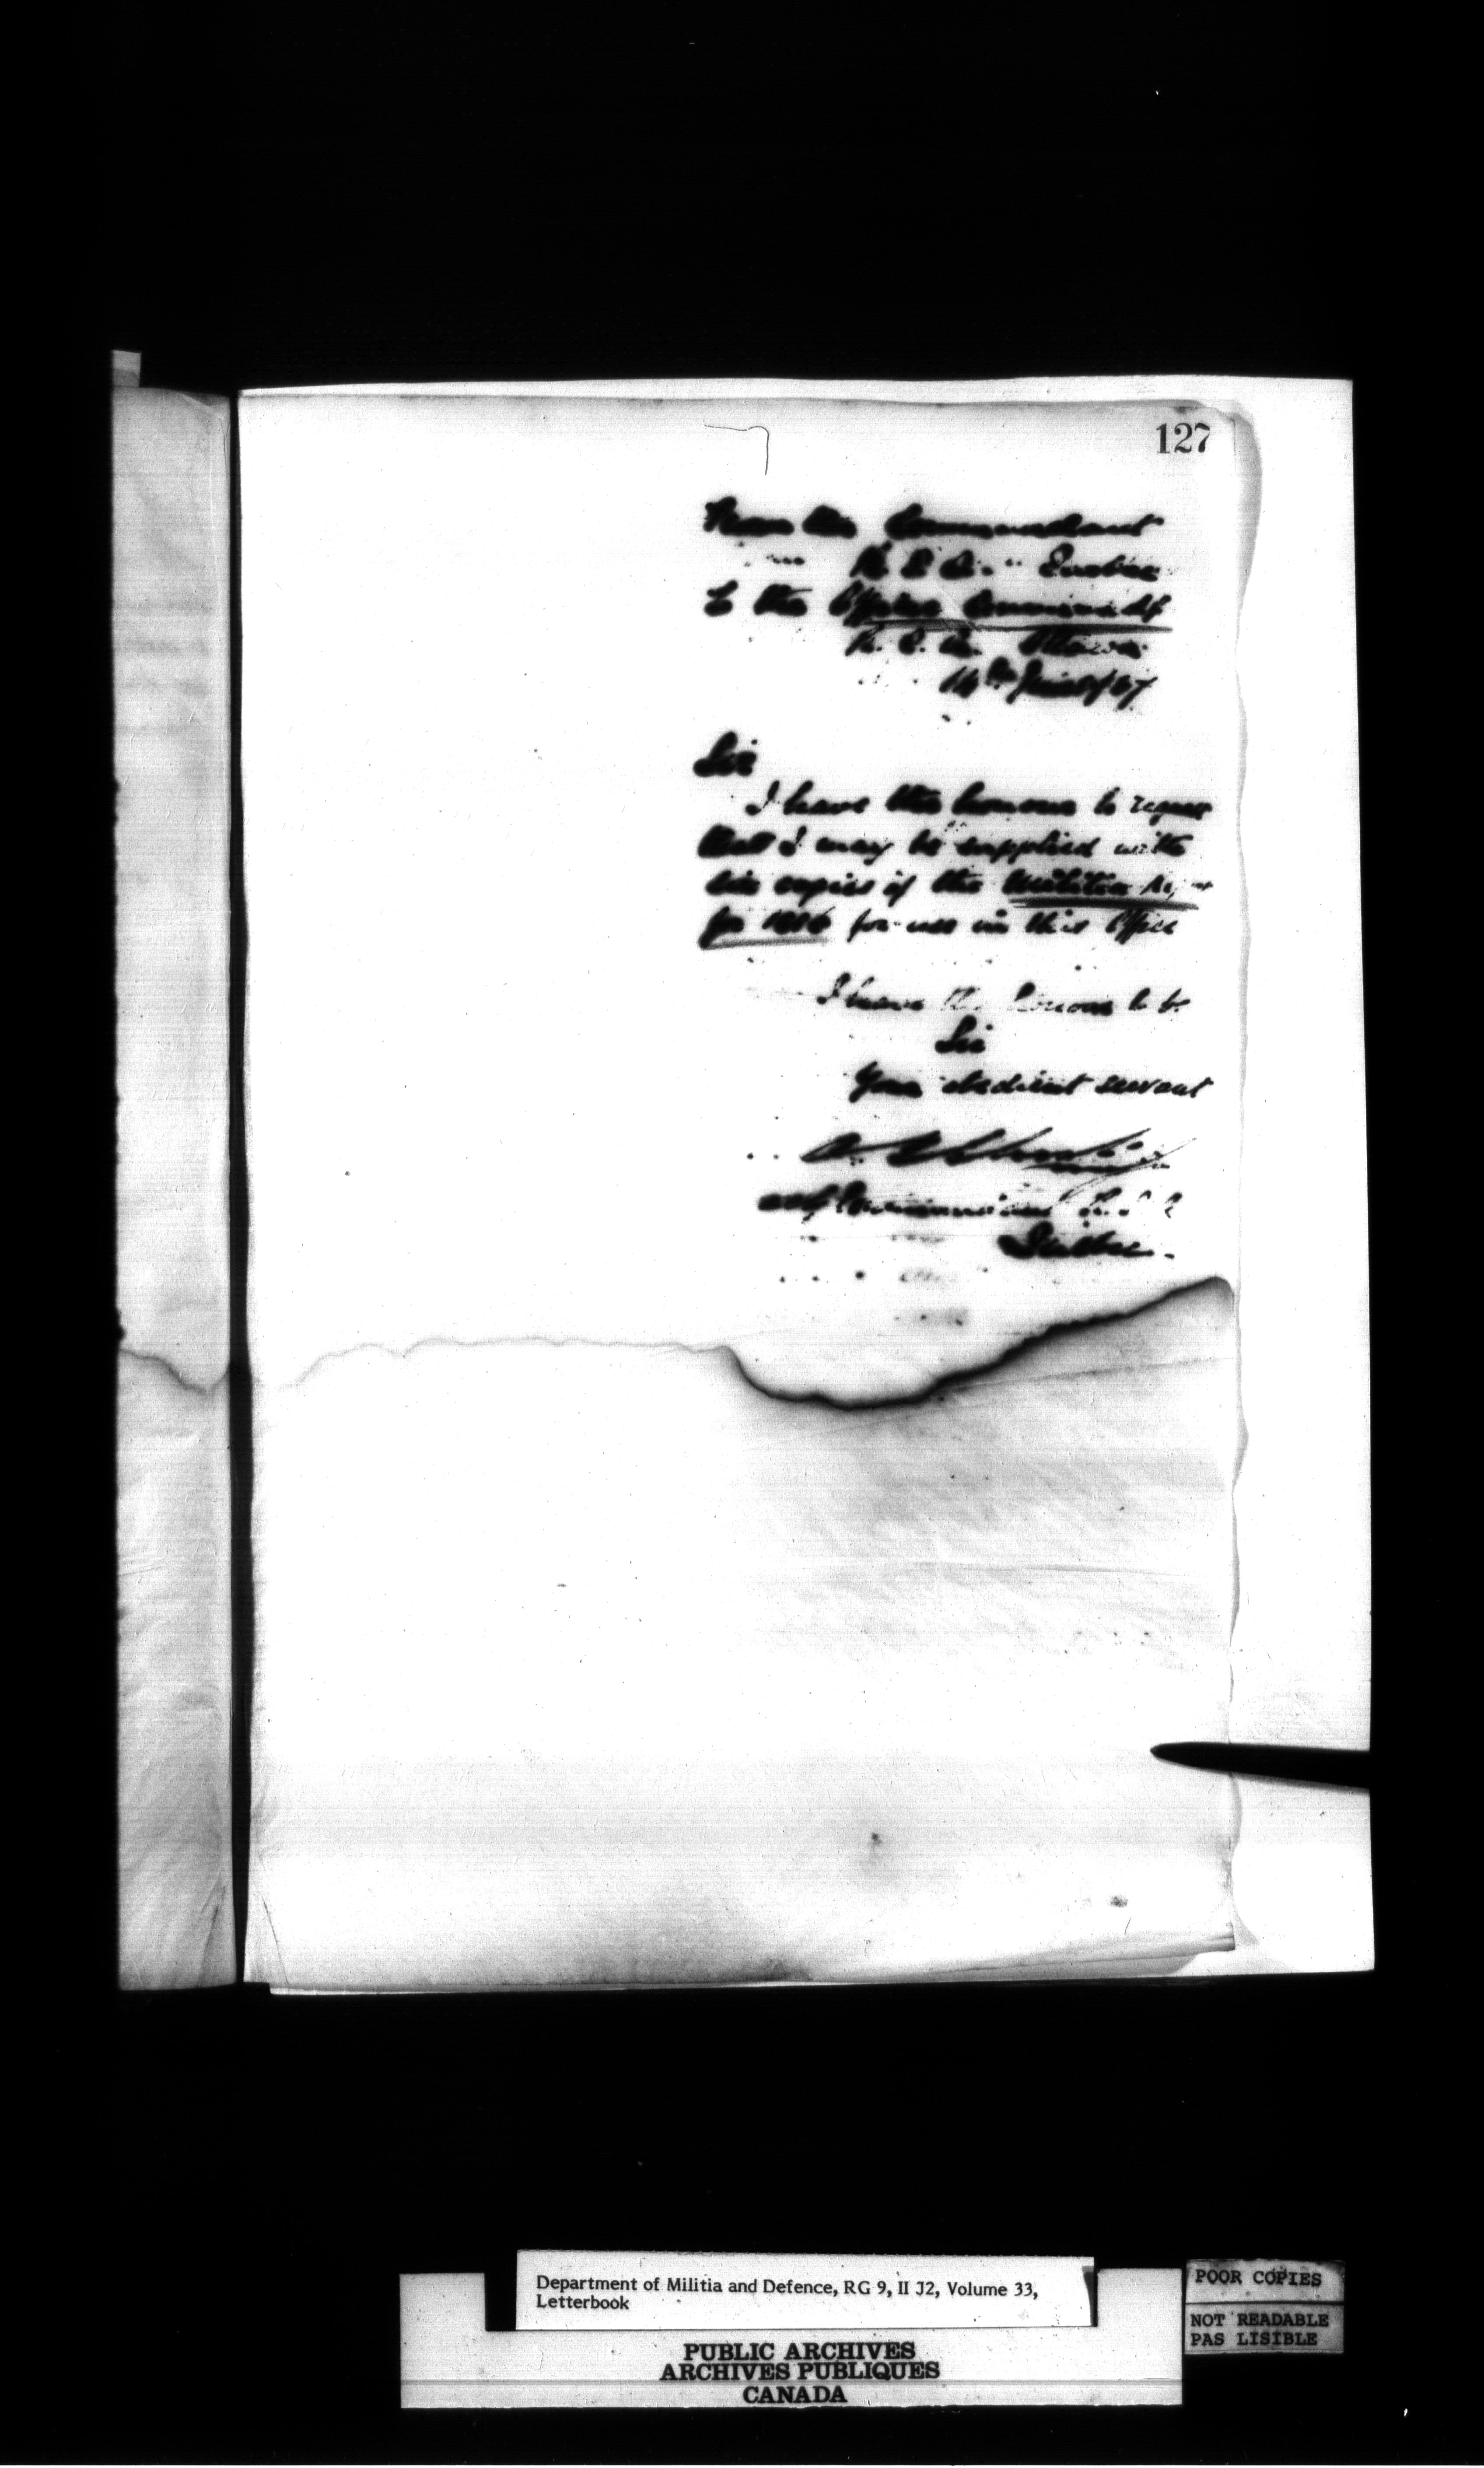 127
From the Commandant
R. S. A. Quebec
to the Officer Commandg
R. S. A. Ottawa
14th /87
Sir
I have the honour to request
that I may be supplied with
six copies of the Militia
for 1886 for use in this Office
I have the honour to be
Sir
Your obedient servant
Commandant
Quebec.
Department of Militia and Defence, RG 9, II J2, Volume 33,
Letterbook
PUBLIC ARCHIVES
ARCHIVES PUBLIQUES
CANADA
POOR COPIES
NOT READABLE
PAS LISIBLE